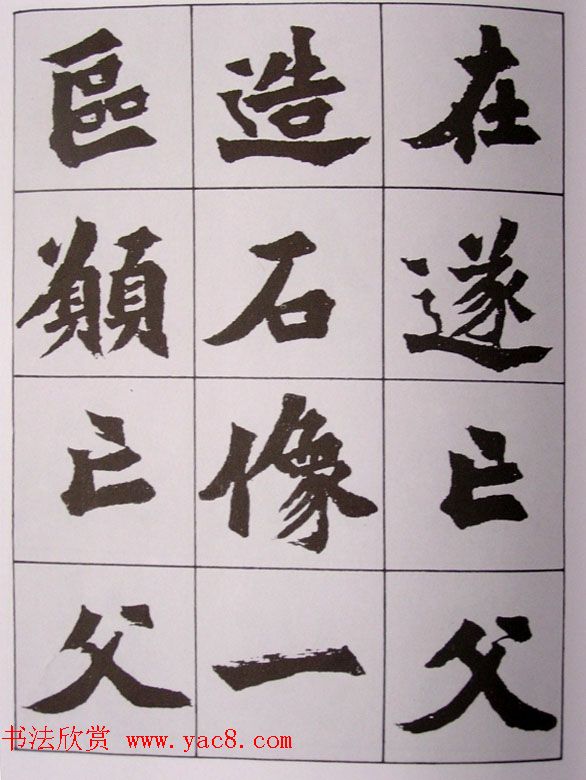 在遂亡父
造石像一
區願亡父
书法欣赏 www.yac8.com